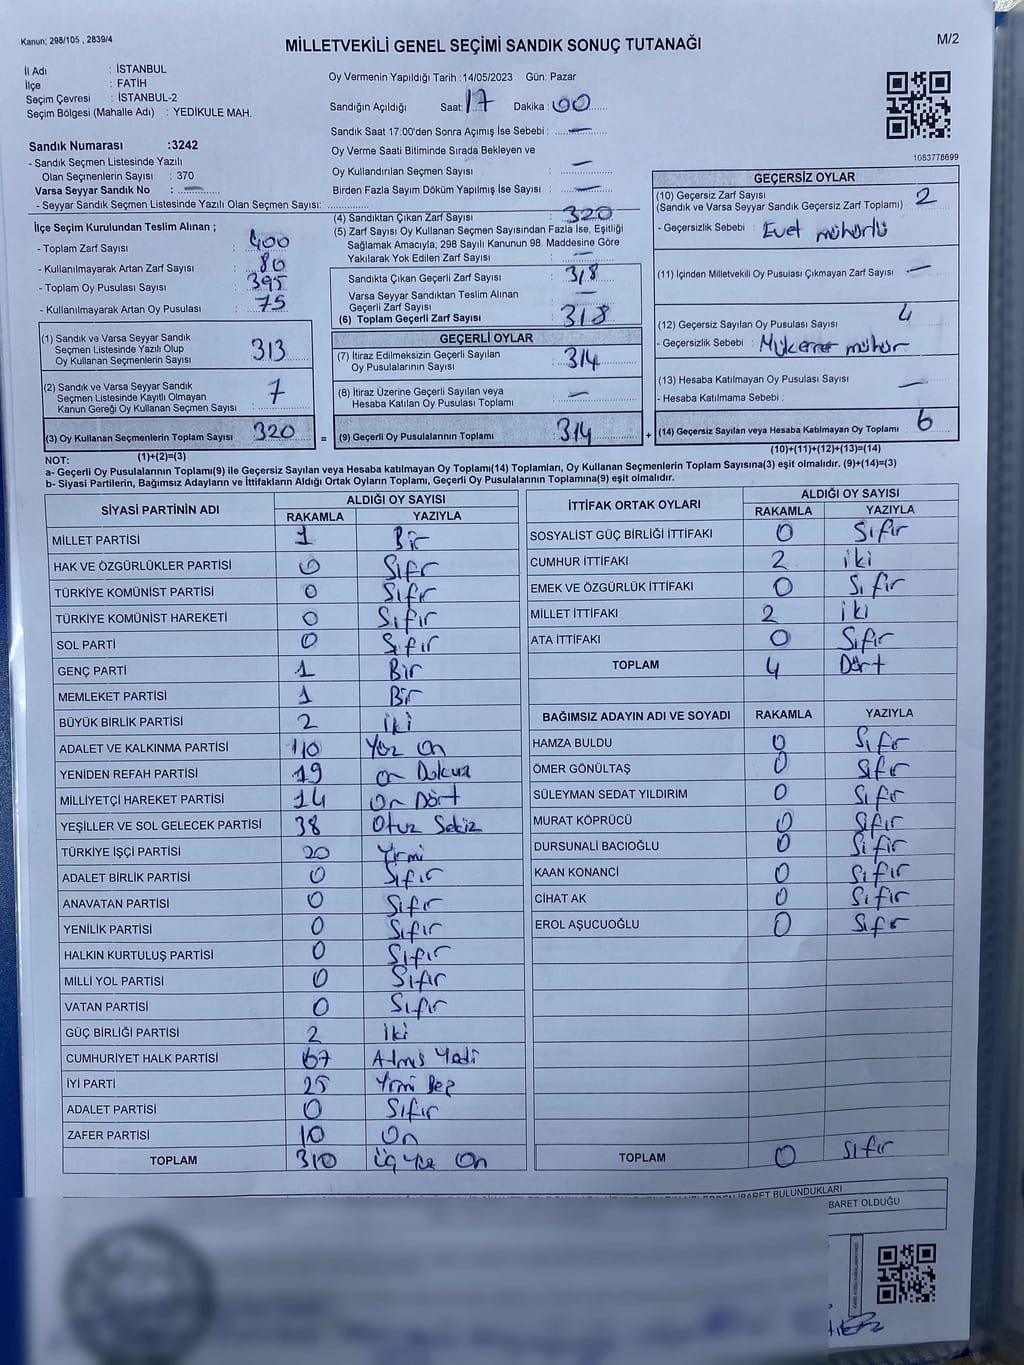 Kanun; 298/105 , 2839/4
MİLLETVEKİLİ GENEL SEÇİMİ SANDIK SONUÇ TUTANAĞI
M/2
İl Adı : İSTANBUL
İlçe : FATİH
Seçim Çevresi : İSTANBUL-2
Seçim Bölgesi (Mahalle Adı) : YEDİKULE MAH.
Sandık Numarası :3242
- Sandık Seçmen Listesinde Yazılı
Olan Seçmenlerin Sayısı : 370
Varsa Seyyar Sandık No : —
- Seyyar Sandık Seçmen Listesinde Yazılı Olan Seçmen Sayısı:
Oy Vermenin Yapıldığı Tarih :14/05/2023 Gün: Pazar
Sandığın Açıldığı Saat: 17 Dakika : 00
Sandık Saat 17:00'den Sonra Açımış İse Sebebi : —
Oy Verme Saati Bitiminde Sırada Bekleyen ve
Oy Kullandırılan Seçmen Sayısı : —
Birden Fazla Sayım Döküm Yapılmış İse Sayısı : —
1063778699
İlçe Seçim Kurulundan Teslim Alınan ;
- Toplam Zarf Sayısı : 400
- Kullanılmayarak Artan Zarf Sayısı : 80
- Toplam Oy Pusulası Sayısı : 395
- Kullanılmayarak Artan Oy Pusulası : 75
(1) Sandık ve Varsa Seyyar Sandık
Seçmen Listesinde Yazılı Olup
Oy Kullanan Seçmenlerin Sayısı : 313
(2) Sandık ve Varsa Seyyar Sandık
Seçmen Listesinde Kayıtlı Olmayan
Kanun Gereği Oy Kullanan Seçmen Sayısı : 7
(3) Oy Kullanan Seçmenlerin Toplam Sayısı 320 =
(1)+(2)=(3)
(4) Sandıktan Çıkan Zarf Sayısı : 320
(5) Zarf Sayısı Oy Kullanan Seçmen Sayısından Fazla İse, Eşitliği
Sağlamak Amacıyla; 298 Sayılı Kanunun 98. Maddesine Göre
Yakılarak Yok Edilen Zarf Sayısı : —
Sandıkta Çıkan Geçerli Zarf Sayısı : 318
Varsa Seyyar Sandıktan Teslim Alınan
Geçerli Zarf Sayısı : —
(6) Toplam Geçerli Zarf Sayısı : 318
GEÇERLİ OYLAR
(7) İtiraz Edilmeksizin Geçerli Sayılan
Oy Pusulalarının Sayısı : 314
(8) İtiraz Üzerine Geçerli Sayılan veya
Hesaba Katılan Oy Pusulası Toplamı : —
(9) Geçerli Oy Pusulalarının Toplamı : 314 +
GEÇERSİZ OYLAR
(10) Geçersiz Zarf Sayısı
(Sandık ve Varsa Seyyar Sandık Geçersiz Zarf Toplamı) : 2
- Geçersizlik Sebebi : Evet mühürlü
(11) İçinden Milletvekili Oy Pusulası Çıkmayan Zarf Sayısı : —
(12) Geçersiz Sayılan Oy Pusulası Sayısı : 4
- Geçersizlik Sebebi : Mükerrer mühür
(13) Hesaba Katılmayan Oy Pusulası Sayısı : —
- Hesaba Katılmama Sebebi :
(14) Geçersiz Sayılan veya Hesaba Katılmayan Oy Toplamı : 6
(10)+(11)+(12)+(13)=(14)
NOT:
a- Geçerli Oy Pusulalarının Toplamı(9) ile Geçersiz Sayılan veya Hesaba katılmayan Oy Toplamı(14) Toplamları, Oy Kullanan Seçmenlerin Toplam Sayısına(3) eşit olmalıdır. (9)+(14)=(3)
b- Siyasi Partilerin, Bağımsız Adayların ve İttifakların Aldığı Ortak Oyların Toplamı, Geçerli Oy Pusulalarının Toplamına(9) eşit olmalıdır.
SİYASİ PARTİNİN ADI ALDIĞI OY SAYISI
RAKAMLA YAZIYLA
MİLLET PARTİSİ 1 Bir
HAK VE ÖZGÜRLÜKLER PARTİSİ 0 Sıfır
TÜRKİYE KOMÜNİST PARTİSİ 0 Sıfır
TÜRKİYE KOMÜNİST HAREKETİ 0 Sıfır
SOL PARTİ 0 Sıfır
GENÇ PARTİ 1 Bir
MEMLEKET PARTİSİ 1 Bir
BÜYÜK BİRLİK PARTİSİ 2 iki
ADALET VE KALKINMA PARTİSİ 110 Yüz on
YENİDEN REFAH PARTİSİ 19 on Dokuz
MİLLİYETÇİ HAREKET PARTİSİ 14 On Dört
YEŞİLLER VE SOL GELECEK PARTİSİ 38 Otuz Sekiz
TÜRKİYE İŞÇİ PARTİSİ 20 Yirmi
ADALET BİRLİK PARTİSİ 0 Sıfır
ANAVATAN PARTİSİ 0 Sıfır
YENİLİK PARTİSİ 0 Sıfır
HALKIN KURTULUŞ PARTİSİ 0 Sıfır
MİLLİ YOL PARTİSİ 0 Sıfır
VATAN PARTİSİ 0 Sıfır
GÜÇ BİRLİĞİ PARTİSİ 2 iki
CUMHURİYET HALK PARTİSİ 67 Atmış Yedi
İYİ PARTİ 25 Yirmi Beş
ADALET PARTİSİ 0 Sıfır
ZAFER PARTİSİ 10 On
TOPLAM 310 üç yüz On
İTTİFAK ORTAK OYLARI ALDIĞI OY SAYISI
RAKAMLA YAZIYLA
SOSYALİST GÜÇ BİRLİĞİ İTTİFAKI 0 Sıfır
CUMHUR İTTİFAKI 2 iki
EMEK VE ÖZGÜRLÜK İTTİFAKI 0 Sıfır
MİLLET İTTİFAKI 2 iki
ATA İTTİFAKI 0 Sıfır
TOPLAM 4 Dört
BAĞIMSIZ ADAYIN ADI VE SOYADI RAKAMLA YAZIYLA
HAMZA BULDU 0 Sıfır
ÖMER GÖNÜLTAŞ 0 Sıfır
SÜLEYMAN SEDAT YILDIRIM 0 Sıfır
MURAT KÖPRÜCÜ 0 Sıfır
DURSUNALİ BACIOĞLU 0 Sıfır
KAAN KONANCİ 0 Sıfır
CİHAT AK 0 Sıfır
EROL AŞUCUOĞLU 0 Sıfır
TOPLAM 0 Sıfır
İBARET BULUNDUKLARI
BARET OLDUĞU